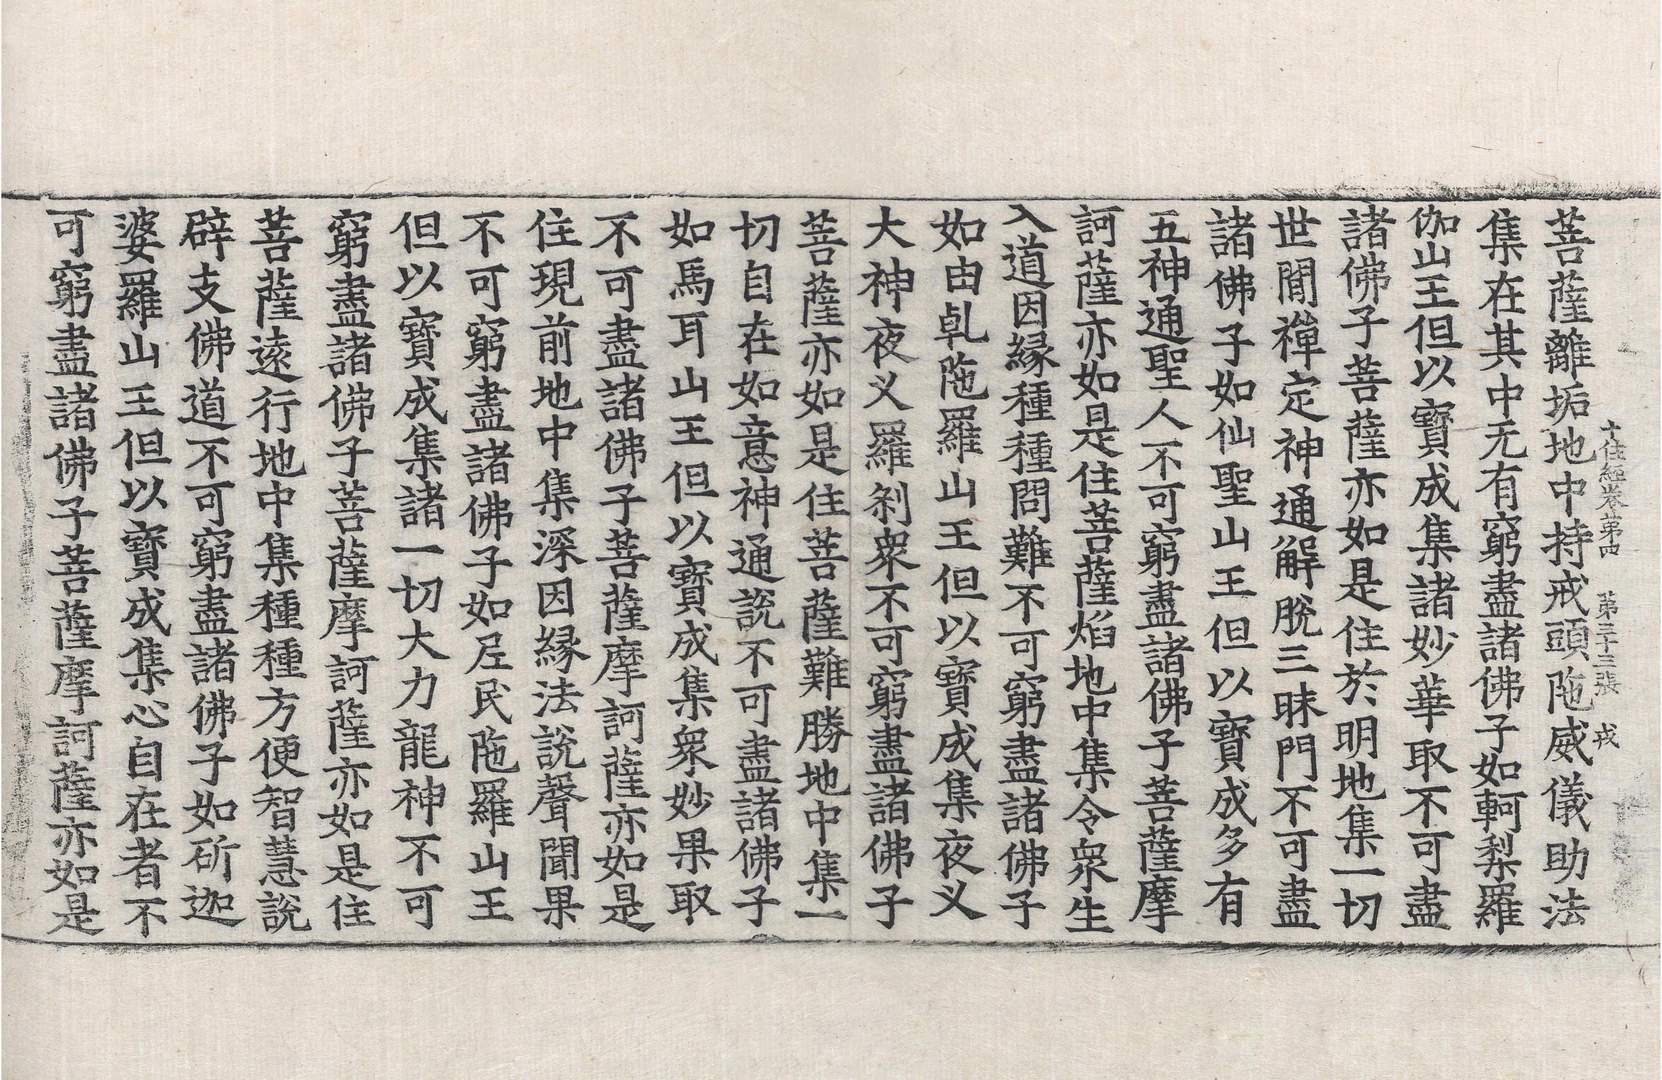 十住經卷第四　第三十三張　戎
菩薩離垢地中持戒頭陁威儀助法
集在其中无有窮盡諸佛子如軻梨羅
伽山王但以寶成集諸妙華取不可盡
諸佛子菩薩亦如是住於明地集一切
世閒禪定神通解脫三昧門不可盡
諸佛子如仙聖山王但以寶成多有
五神通聖人不可窮盡諸佛子菩薩摩
訶薩亦如是住菩薩焰地中集令衆生
入道因緣種種問難不可窮盡諸佛子
如由乹陁羅山王但以寶成集夜义
大神夜义羅剎衆不可窮盡諸佛子
菩薩亦如是住菩薩難勝地中集一
切自在如意神通說不可盡諸佛子
如馬耳山王但以寶成集衆妙果取
不可盡諸佛子菩薩摩訶薩亦如是
住現前地中集深因緣法說聲聞果
不可窮盡諸佛子如尼民陁羅山王
但以寶成集諸一切大力龍神不可
窮盡諸佛子菩薩摩訶薩亦如是住
菩薩遠行地中集種種方便智慧說
辟支佛道不可窮盡諸佛子如斫迦
婆羅山王但以寶成集心自在者不
可窮盡諸佛子菩薩摩訶薩亦如是